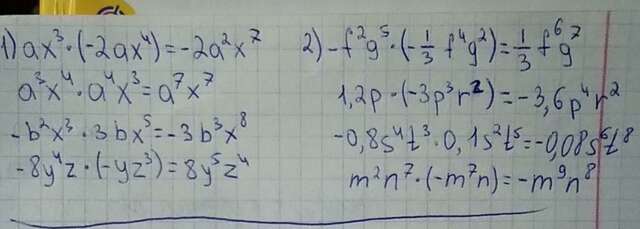 1) ax³·(-2ax⁴)=-2a²x⁷
a³x⁴·a⁴x³=a⁷x⁷
-b²x³·3bx⁵=-3b³x⁸
-8y⁴z·(-yz³)=8y⁵z⁴
2) -f²g⁵·(-1/3 f⁴g²)=1/3 f⁶g⁷
1,2p·(-3p³r²)=-3,6p⁴r²
-0,8s⁴t³·0,1s²t⁵=-0,08s⁶t⁸
m²n⁷·(-m⁷n)=-m⁹n⁸